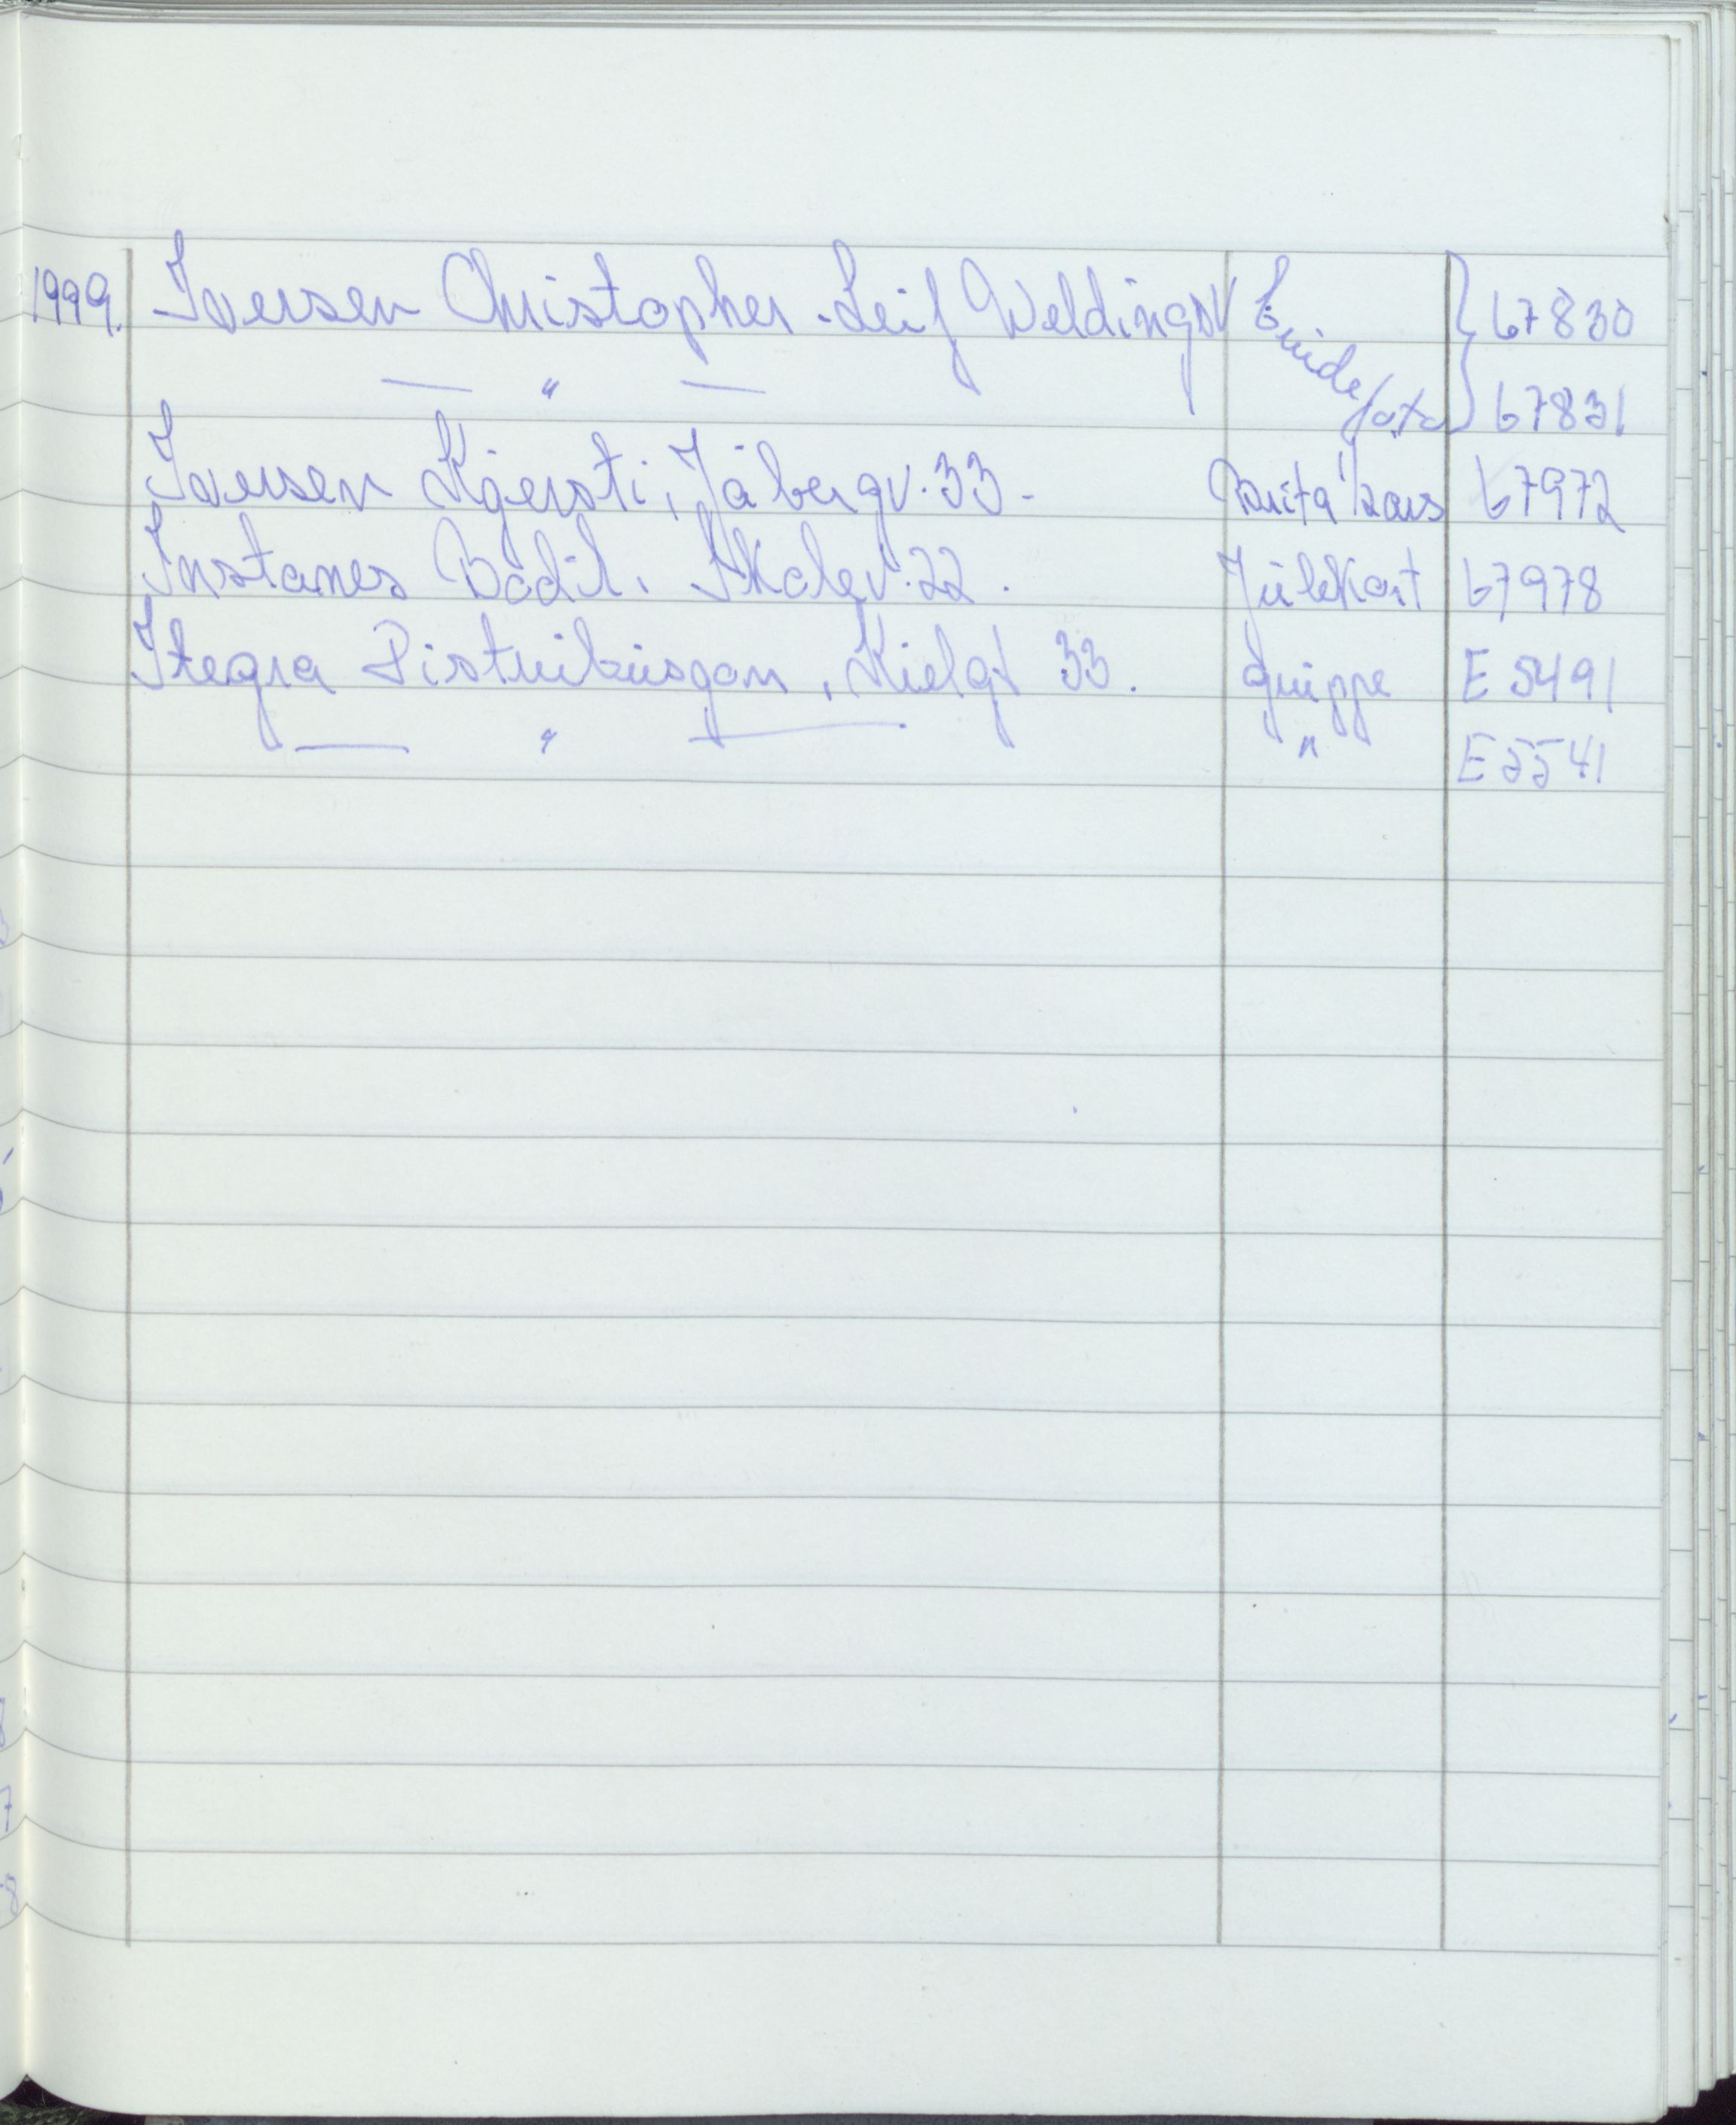 1999. Iversen Christopher. Leif Weldingsv Brudefoto 67830
— " — 67831
Iversen Kjersti, Jåbergv. 33. Brita 67972
Instanes Bodil. Skolev. 22. Julekort 67978
Itegra Distribusjon, Kielgt 33. Gruppe E 5491
— " — " E 5541